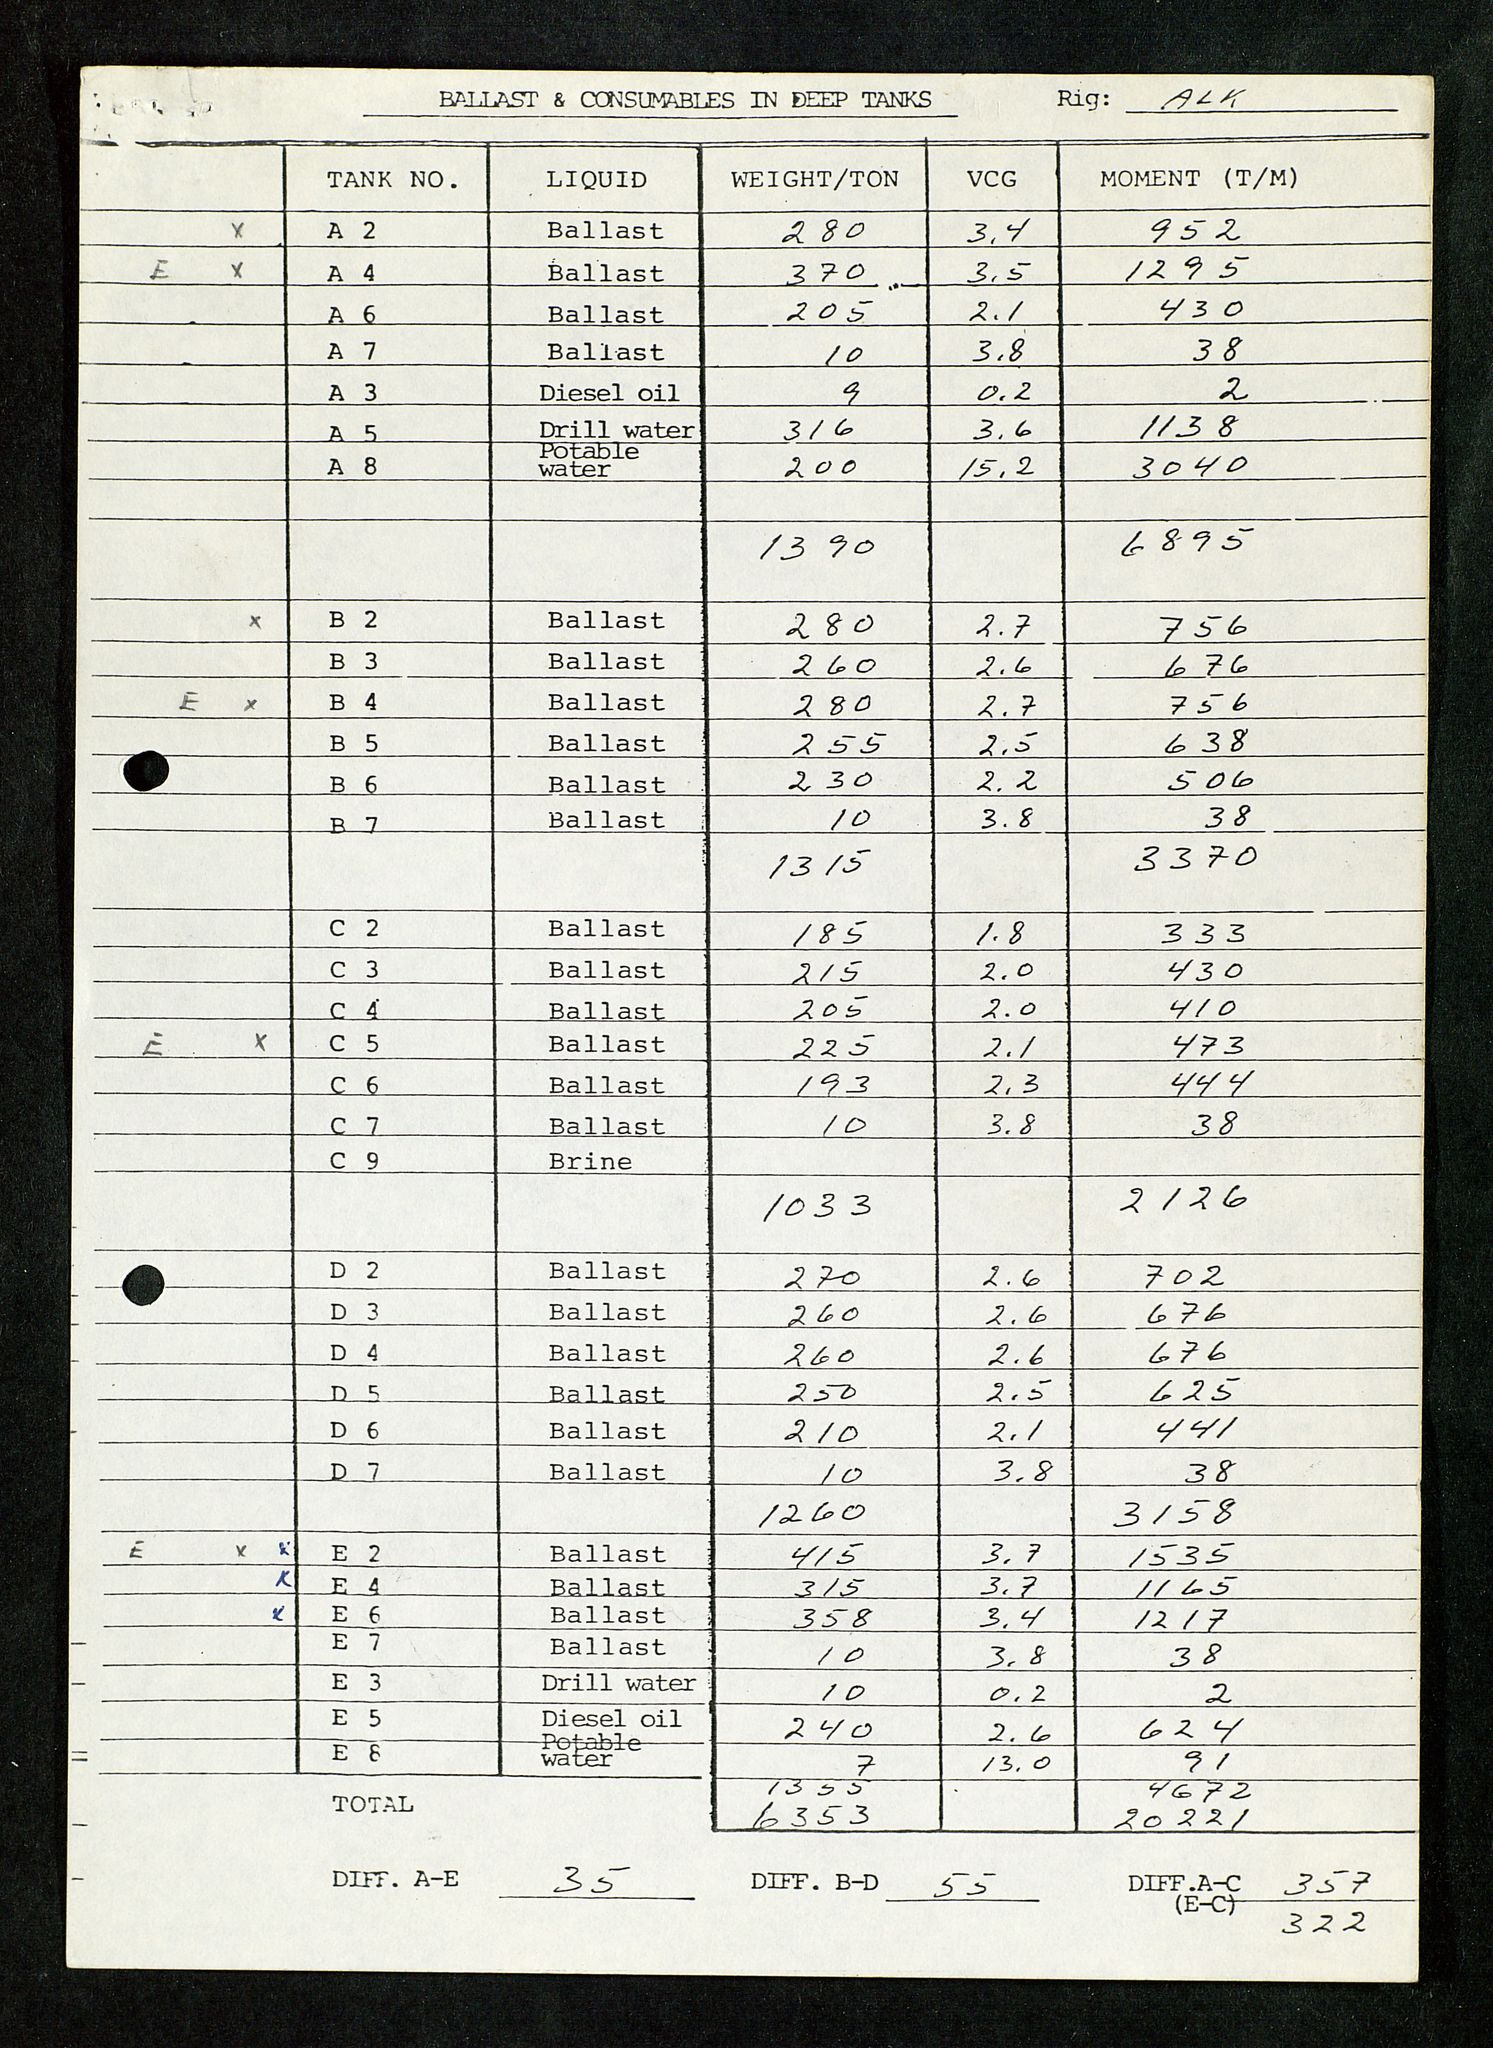 BALLAST & CONSUMABLES IN DEEP TANKS Rig: ALK
TANK NO. LIQUID WEIGHT/TON VCG MOMENT (T/M)
x A 2 Ballast 280 3.4 952
E x A 4 Ballast 370 3.5 1295
A 6 Ballast 205 2.1 430
A 7 Ballast 10 3.8 38
A 3 Diesel oil 9 0.2 2
A 5 Drill water 316 3.6 1138
A 8 Potable water 200 15.2 3040
1390 6895
x B 2 Ballast 280 2.7 756
B 3 Ballast 260 2.6 676
E x B 4 Ballast 280 2.7 756
B 5 Ballast 255 2.5 638
B 6 Ballast 230 2.2 506
B 7 Ballast 10 3.8 38
1315 3370
C 2 Ballast 185 1.8 333
C 3 Ballast 215 2.0 430
C 4 Ballast 205 2.0 410
E x C 5 Ballast 225 2.1 473
C 6 Ballast 193 2.3 444
C 7 Ballast 10 3.8 38
C 9 Brine
1033 2126
D 2 Ballast 270 2.6 702
D 3 Ballast 260 2.6 676
D 4 Ballast 260 2.6 676
D 5 Ballast 250 2.5 625
D 6 Ballast 210 2.1 441
D 7 Ballast 10 3.8 38
1260 3158
E x x E 2 Ballast 415 3.7 1535
x E 4 Ballast 315 3.7 1165
x E 6 Ballast 358 3.4 1217
E 7 Ballast 10 3.8 38
E 3 Drill water 10 0.2 2
E 5 Diesel oil 240 2.6 624
E 8 Potable water 7 13.0 91
1355 4672
TOTAL 6353 20221
DIFF. A-E 35 DIFF. B-D 55 DIFF.A-C 357
(E-C) 322